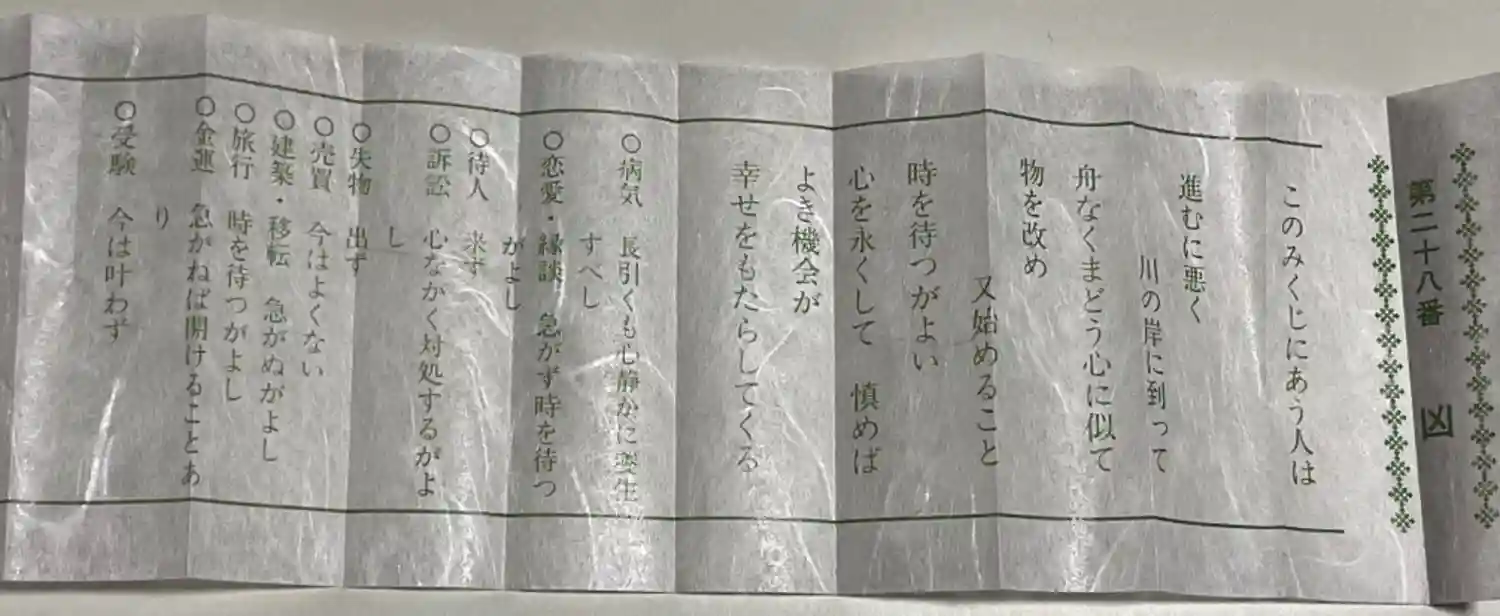 第二十八番 凶
このみくじにあう人は
進むに悪く
川の岸に到って
舟なくまどう心に似て
物を改め
又始めること
時を待つがよい
心を永くして 慎めば
よき機会が
幸せをもたらしてくる
○病気 長引くも心静かに養生
すべし
○恋愛・縁談 急がず時を待つ
がよし
○待人 来ず
○訴訟 心なかく対処するがよ
し
○失物 出ず
○売買 今はよくない
○建築・移転 急がぬがよし
○旅行 時を待つがよし
○金運 急がねば開けることあ
り
○受験 今は叶わず